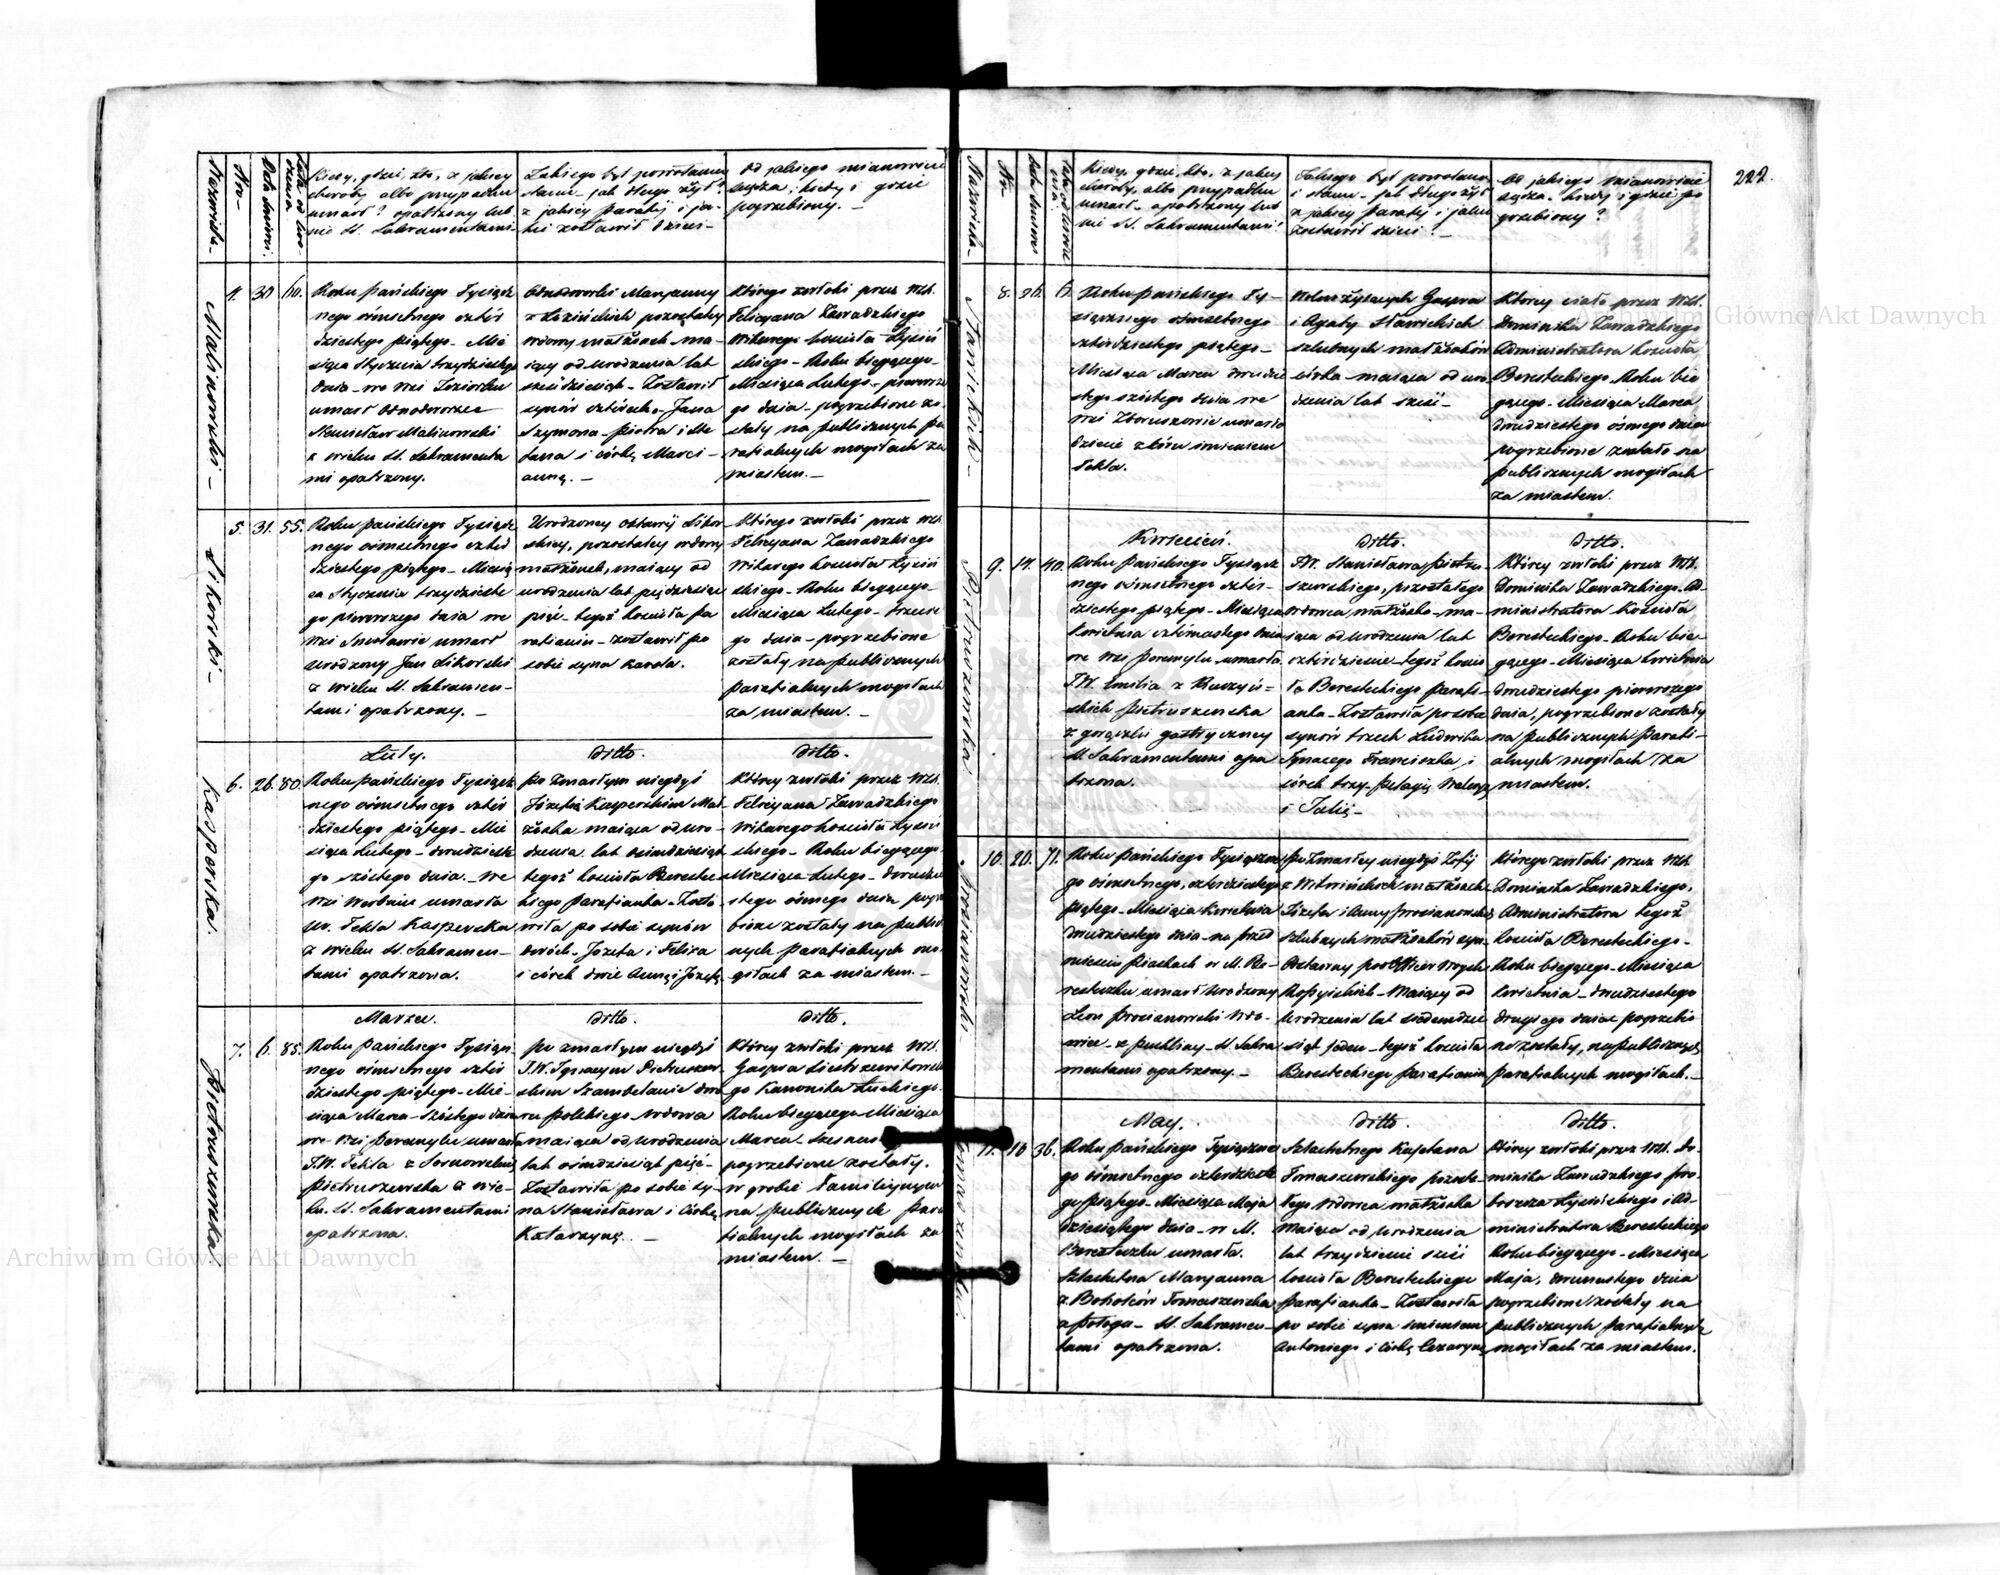 222.
Nazwiska
Nro
Data śmierci
Lata od uro-
dzenia
Kiedy, gdzie, kto, z jakiej
choroby albo przypadku
umarł? opatrzony lub
nie SS. Sakramentami
Jakiego był powołania
stanu – jak długo żył?
z jakiej Parafij i ja-
kie zostawił dzieci –
Od jakiego mianowicie
księdza, kiedy i gdzie
pogrzebiony. –
Malinowski –
4. 30 60.
Roku Pańskiego Tysiącz
nego ośmsetnego czter
dziestego piątego – Mie
siąca Stycznia trzydziestego
dnia – we wsi
umarł Odnodworzec
Stanisław Malinowski
z wieku SS. Sakramenta
mi opatrzony.
Odnodworki Maryanny
z pozostały
wdowy małżonek – ma-
iący od urodzenia lat
sześćdziesiąt – Zostawił
synów czterech – Jana
Szymona – Piotra i
i córkę Marci-
annę. –
Którego zwłoki przez WX.
Felicyana Zawadzkiego
Wikarego kościoła
skiego – Roku biegącego –
Miesiąca Lutego – pierwsze
go dnia – pogrzebione zo-
stały na publicznych pa
rafialnych mogiłach za
miastem. –
Sikorski –
5. 31. 55.
Roku Pańskiego Tysiącz
nego ośmsetnego czter
dziestego piątego – Miesią
ca Stycznia trzydzieste
go pierwszego dnia we
wsi umarł
Urodzony Jan Sikorski
z wieku SS. Sakramen-
tami opatrzony. –
Urodzoney Sikor
skiey, pozostałey wdowy
małżonek, maiący od
urodzenia lat pięćdziesiąt
pięć – tegoż kościoła pa
rafianin – zostawił po
sobie syna Karola.
Którego zwłoki przez WX.
Felicyana Zawadzkiego
Wikarego kościoła
skiego – Roku biegącego –
Miesiąca Lutego – trzecie
go dnia – pogrzebione
zostały na publicznych
parafialnych mogiłach
za miastem. –
Kasperska.
Luty. Ditto. Ditto.
6. 26. 80.
Roku Pańskiego Tysiącz
nego ośmsetnego czter
dziestego piątego – Mie
siąca Lutego – dwudzieste
go szóstego dnia. – we
wsi umarła
Ur. Tekla Kasperska
z wieku SS. Sakramen-
tami opatrzona.
Po zmarłym niegdyś
Józefie Kasperskim Mał
żonka maiąca od uro-
dzenia lat ośmdziesiąt
tegoż kościoła Berestec
kiego parafianka – Zosta
wiła po sobie synów
dwóch – Józefa i Felixa
i córek dwie Annę i Józefę
Którey zwłoki przez WX.
Felicyana Zawadzkiego
Wikarego kościoła
skiego – Roku biegącego –
Miesiąca Lutego – dwudzie
stego ósmego dnia pogrze
bione zostały na publicz
nych parafialnych mo-
giłach za miastem. –
Pietruszewska
Marzec. Ditto. Ditto.
7. 6. 85.
Roku Pańskiego Tysiącz
nego ośmsetnego czter
dziestego piątego – Mie-
siąca Marca – Szóstego dnia
we wsi Peremylu umarła
J.W. Tekla z
Pietruszewska z wie-
ku. SS. Sakramentami
opatrzona.
po zmarłym niegdyś
J.W. Ignacym Pietruszew-
skim Szambelanie dwo
ru polskiego wdowa
maiąca od urodzenia
lat ośmdziesiąt pięć –
Zostawiła po sobie sy-
na Stanisława i córkę
Katarzynę. –
Którey zwłoki przez WX.
Gaspra
go Kanonika Łuckiego.
Roku biegącego Miesiąca
Marca
pogrzebione zostały.
w grobie familiynym
na publicznych para
fialnych mogiłach za
miastem. –
Nazwiska –
Nro
Data śmierci
Kiedy, gdzie, kto, z jakiey
choroby, albo przypadku
umarł – opatrzony lub
nie SS. Sakramentami?
Jakiego był powołania
i stanu – jak długo żył?
z jakiey Parafij i jakie
zostawił dzieci? –
Od jakiego mianowicie
księdza – kiedy i gdzie po
grzebiony?
8. 26. 6.
Roku Pańskiego Ty-
siącznego ośmsetnego
czterdziestego piątego –
Miesiąca Marca dwudzie
stego szóstego dnia we
wsi umarło
dziecie imieniem
Tekla.
Gaspra
i Agaty Stawickich
szlubnych małżonków
córka – maiąca od uro
dzenia lat sześć –
Którey ciało przez WX.
Dominika Zawadzkiego
Administratora kościoła
Beresteckiego. Roku bie
gącego – Miesiąca Marca
dwudziestego ósmego dnia
pogrzebione zostało na
publicznych mogiłach
za miastem.
Pietruszewska
Kwiecień. Ditto. Ditto.
9. 14. 40.
Roku Pańskiego Tysiącz
nego ośmsetnego czter-
dziestego piątego – Miesiąca
Kwietnia czternastego dnia
we wsi Peremylu – umarła
J.W. Emilia z
skich Pietruszewska
z gorączki gastryczney
SS. Sakramentami opa
trzona.
J.W. Stanisława Pietru
szewskiego, pozostałego
wdowca małżonka – ma-
iąca od urodzenia lat
czterdzieście – tegoż kościo
ła Beresteckiego parafi-
anka – Zostawiła po sobie
synów trzech Ludwika
Ignacego Franciszka, i
córek trzy – Pelagię Waleryę
i Julię –
Którey zwłoki przez WX.
Dominika Zawadzkiego. Ad-
ministratora kościoła
Beresteckiego – Roku bie-
gącego – Miesiąca kwietnia
dwudziestego pierwszego
dnia, pogrzebione zostały
na publicznych parafi-
alnych mogiłach za
miastem.
10. 20. 71.
Roku Pańskiego Tysiączne
go ośmsetnego, czterdziestego
piątego – Miesiąca kwietnia
dwudziestego dnia – na przed
mieściu Piaskach w M. Be-
resteczku umarł Urodzony
Leon
z puchliny – SS. Sakra
mentami opatrzony. –
Po zmarłey niegdyś Zofij
z małżonek
Józefa i Anny
szlubnych małżonków syn.
Maiący od
Urodzenia lat siedemdzie
siąt jeden – tegoż kościoła
Beresteckiego parafianin
Którego zwłoki przez WX.
Dominika Zawadzkiego.
Administratora tegoż
kościoła Beresteckiego –
Roku biegącego – Miesiąca
kwietnia – dwudziestego
drugiego dnia pogrzebio
ne zostały, na publicznych
parafialnych mogiłach. –
May. Ditto. Ditto.
11. 10 36.
Roku Pańskiego Tysiączne
go ośmsetnego czterdzieste
go piątego – Miesiąca Maja
dziesiątego dnia – w M.
Beresteczku umarła.
Szlachetna Maryanna
z Tomaszewska
z połogu – SS. Sakramen-
tami opatrzona.
Szlachetnego Kajetana
Tomaszewskiego pozosta-
łego wdowca małżonka
maiąca od urodzenia
lat trzydzieście sześć
kościoła Beresteckiego
parafianka – Zostawiła
po sobie syna imieniem
Antoniego i córkę Cezarynę
Którey zwłoki przez WX. Do-
minika Zawadzkiego pro-
boszcza i Ad-
ministratora Beresteckiego
Roku biegącego – Miesiąca
Maja, dwunastego dnia
pogrzebione zostały na
publicznych parafialnych
mogiłach za miastem.
Archiwum Główne Akt Dawnych
Archiwum Główne Akt Dawnych